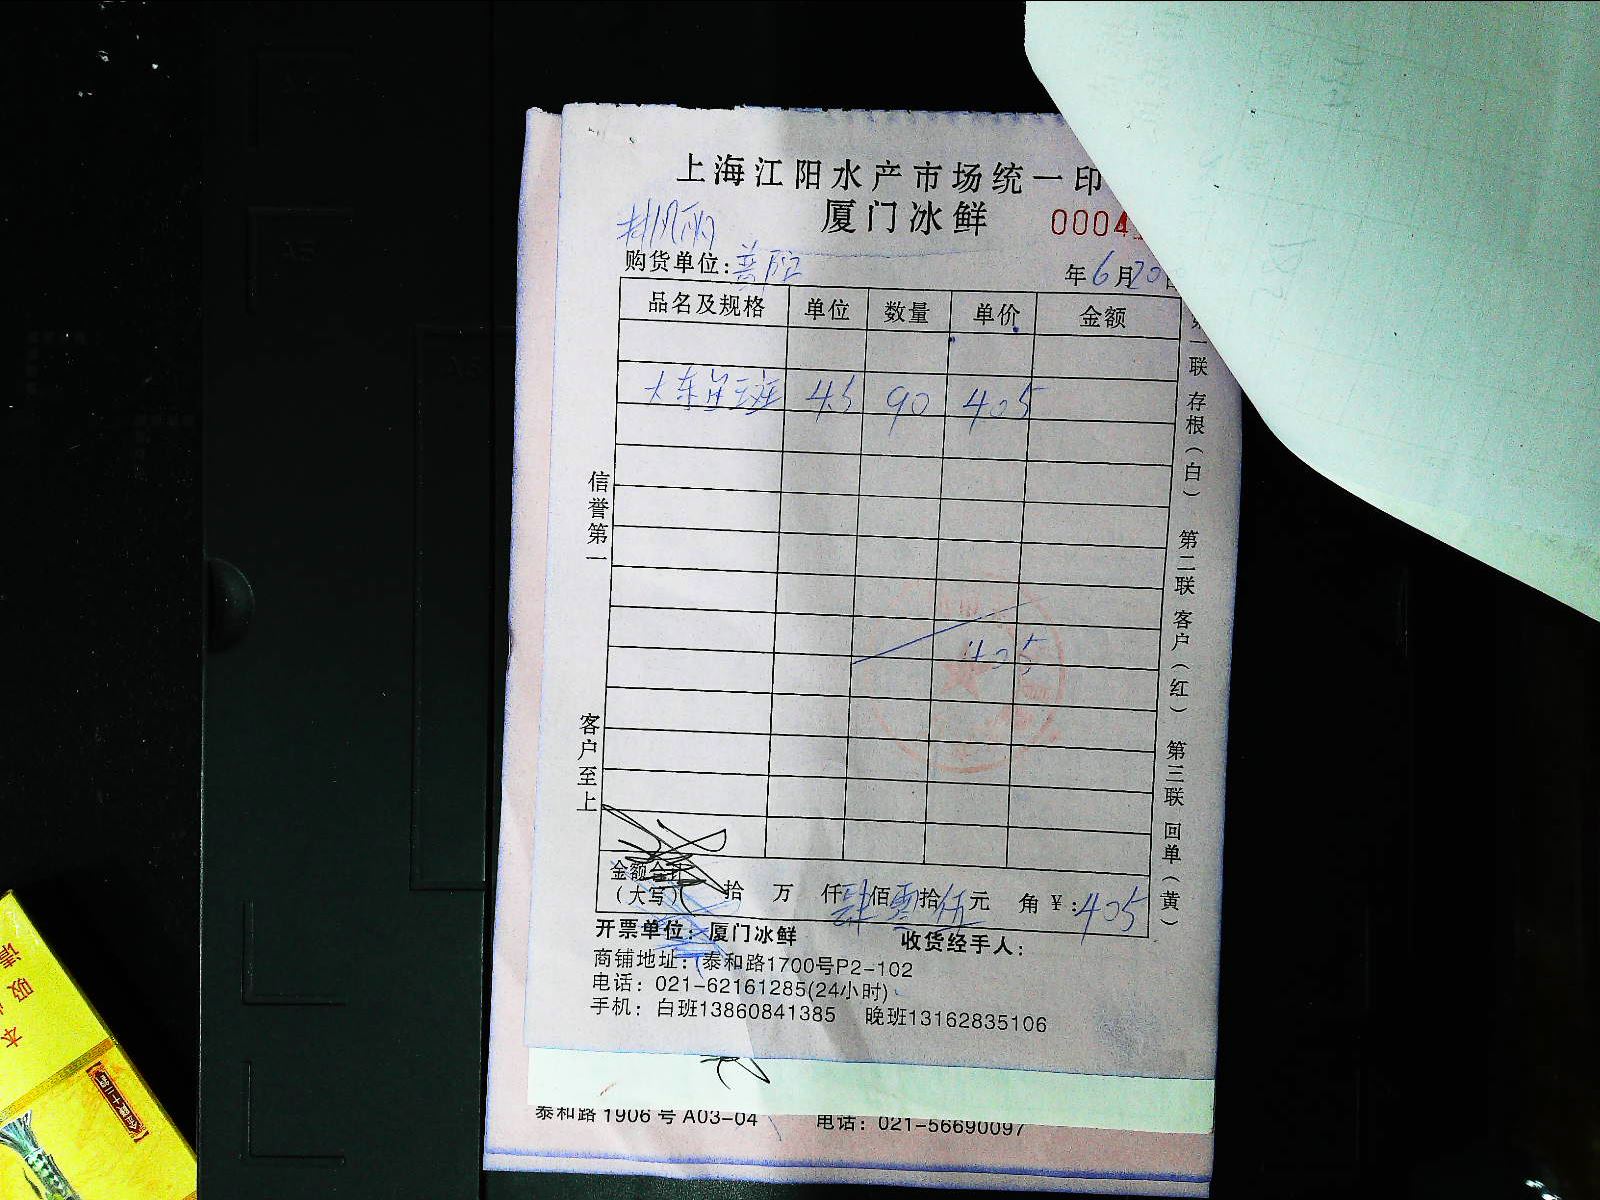 上海江阳水产市场统一印
厦门冰鲜 0004
购货单位:普陀 年6月20日
品名及规格 单位 数量 单价 金额
大东星斑 4.5 90 405
405
金额合计(大写) 拾 万 仟肆佰零拾伍元 角 ¥:405
信誉第一 客户至上
联 存根(白) 第二联 客户(红) 第三联 回单(黄)
开票单位:厦门冰鲜 收货经手人:
商铺地址:泰和路1700号P2-102
电话:021-62161285(24小时)
手机:白班13860841385 晚班13162835106
泰和路1906号A03-04 电话:021-56690097
请 吸
本